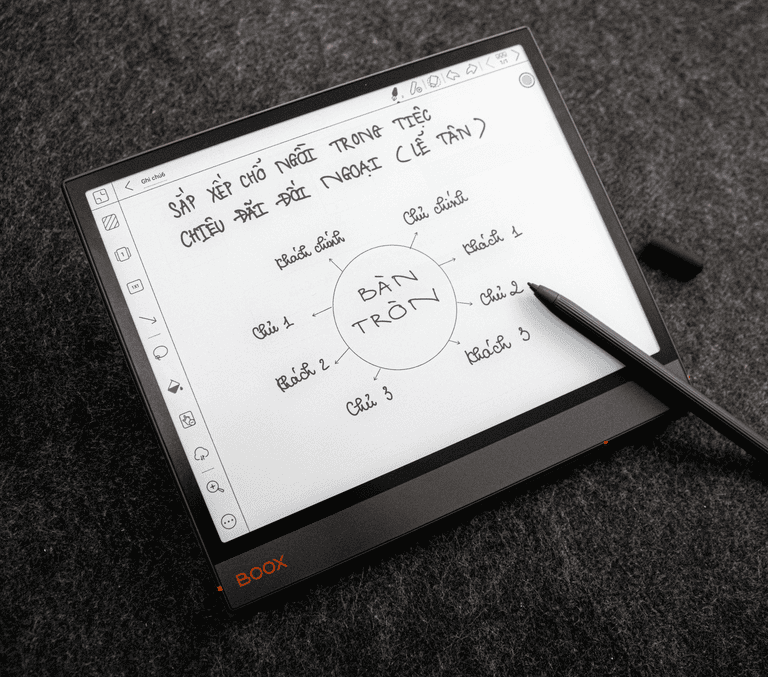 Ghi chú6
SẮP XẾP CHỖ NGỒI TRONG TIỆC
CHIÊU ĐÃI ĐỐI NGOẠI (LỄ TÂN)
Khách chính
Chủ chính
Khách 1
Chủ 2
Khách 3
Chủ 3
Khách 2
Chủ 1
BÀN
TRÒN
BOOX